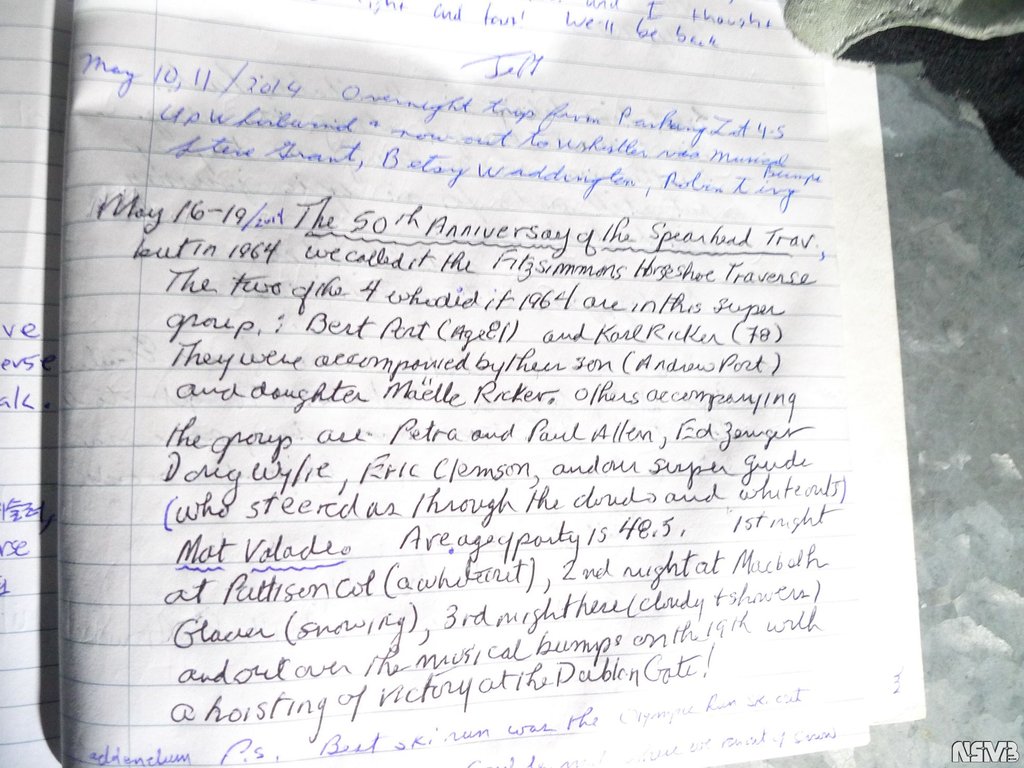 and I thought
right and tour! We'll be back
Jeff
May 10, 11/2014 Overnight trip from Parking Lot 4.5
up Whirlwind & now out to Whistler via Musical
Bumps
Steve Grant, Betsy Waddington, Robin Tivy
May 16-19/2014 The 50th Anniversay of the Spearhead Trav.,
but in 1964 we called it the Fitzsimmons Horseshoe Traverse
The two of the 4 who did it 1964 are in this super
group, : Bert Port (Age 81) and Karl Ricker (78)
They were accompanied by their son (Andrew Port)
and daughter Maëlle Ricker. Others accompanying
the group are Petra and Paul Allen, Ed Zenger
Doug Wylie, Eric Clemson, and our super guide
(who steered us through the clouds and whiteouts)
Mat Valade. Ave. age of party is 48.5. 1st night
at Pattison Col (a whiteout), 2nd night at Macbeth
Glacier (snowing), 3rd night here (cloudy + showers)
and out over the musical bumps on th 19th with
a hoisting of victory at the Dublin Gate!
addendum P.S. Best ski run was the Olympic Run ski out
ve
erse
alk.
rse
NSMB